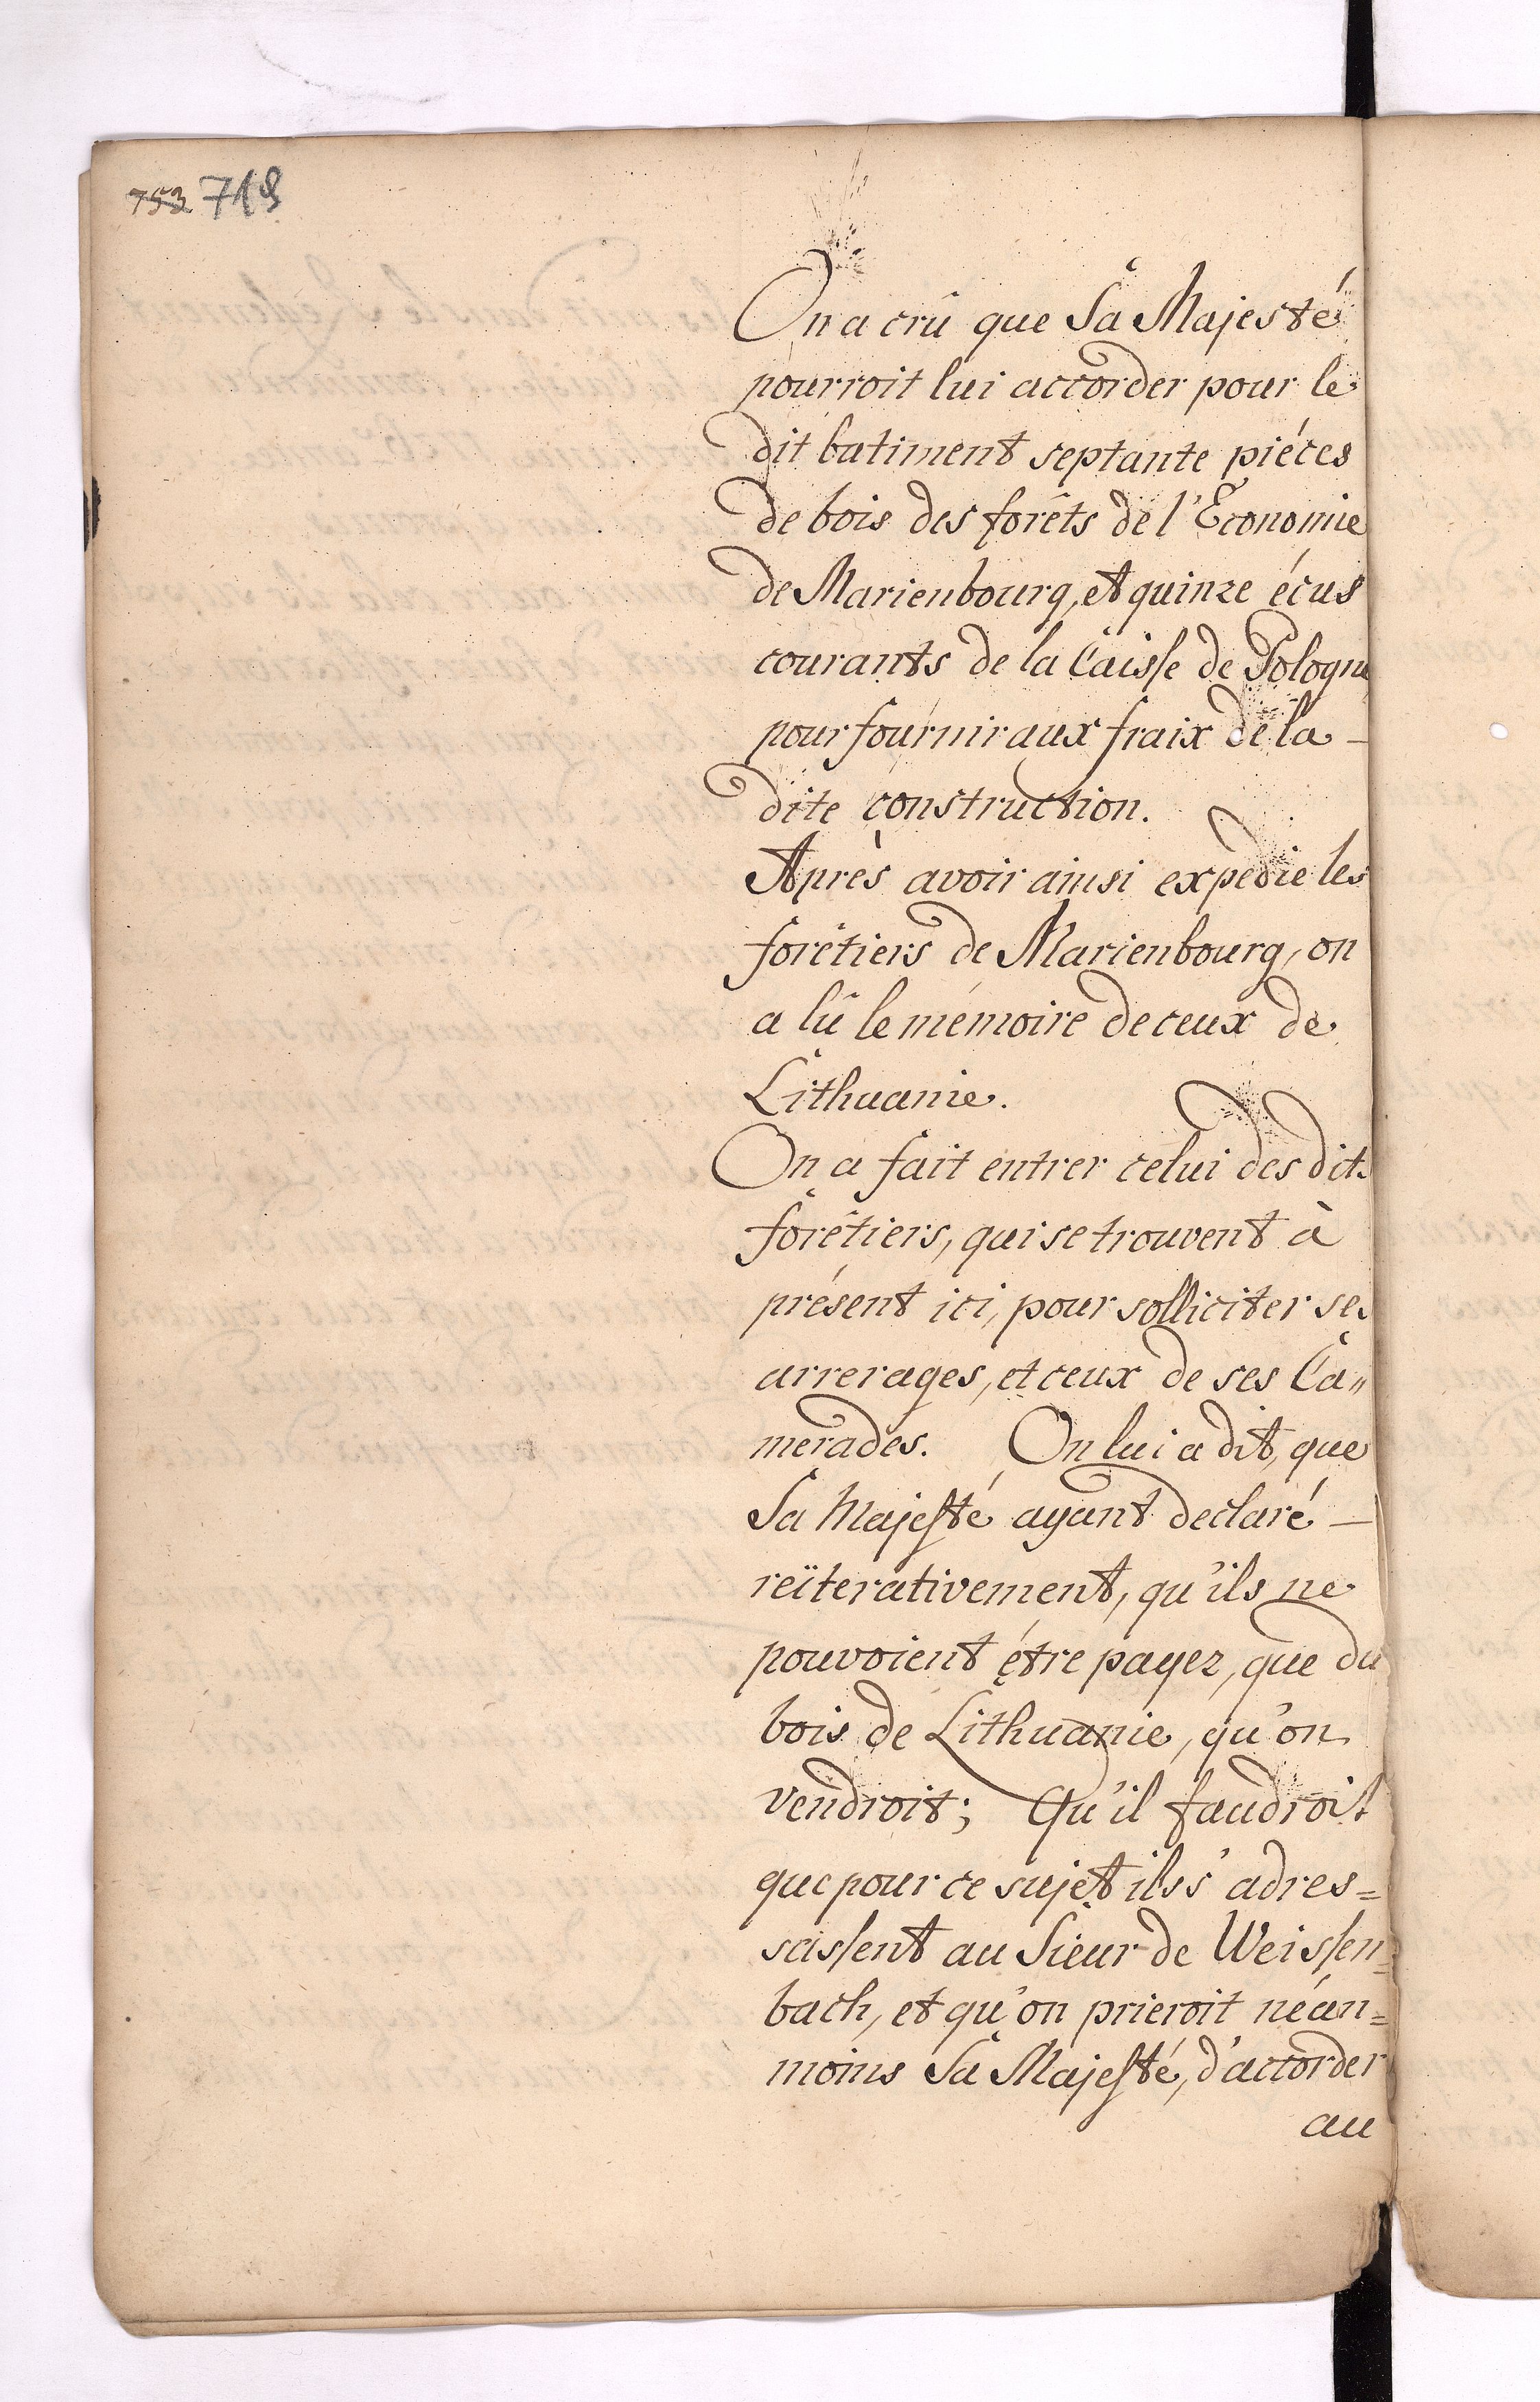 753 719
On a crû que Sa Majesté
pourroit lui accorder pour le
dit batiment septante piéces
de bois des forêts de l'Economie
de Marienbourg, et quinze écus
courants de la Caisse de Pologne
pour fournir aux fraix de la -
dite construction.
Après avoir ainsi expedié les
forêtiers de Marienbourg, on
a lû le mémoire de ceux de
Lithuanie.
On a fait entrer celui des dits
forêtiers, qui se trouvent à
présent ici, pour solliciter ses
arrerages, et ceux de ses Ca„
merades. On lui a dit, que
Sa Majesté ayant declaré —
reïterativement, qu'ils ne
pouvoient être payez, que du
bois de Lithuanie, qu'on
vendroit; Qu'il faudroit
que pour ce sujet ils s'adres=
sassent au Sieur de Weissen=
bach, et qu'on prieroit néan=
moins Sa Majesté, d'accorder
au